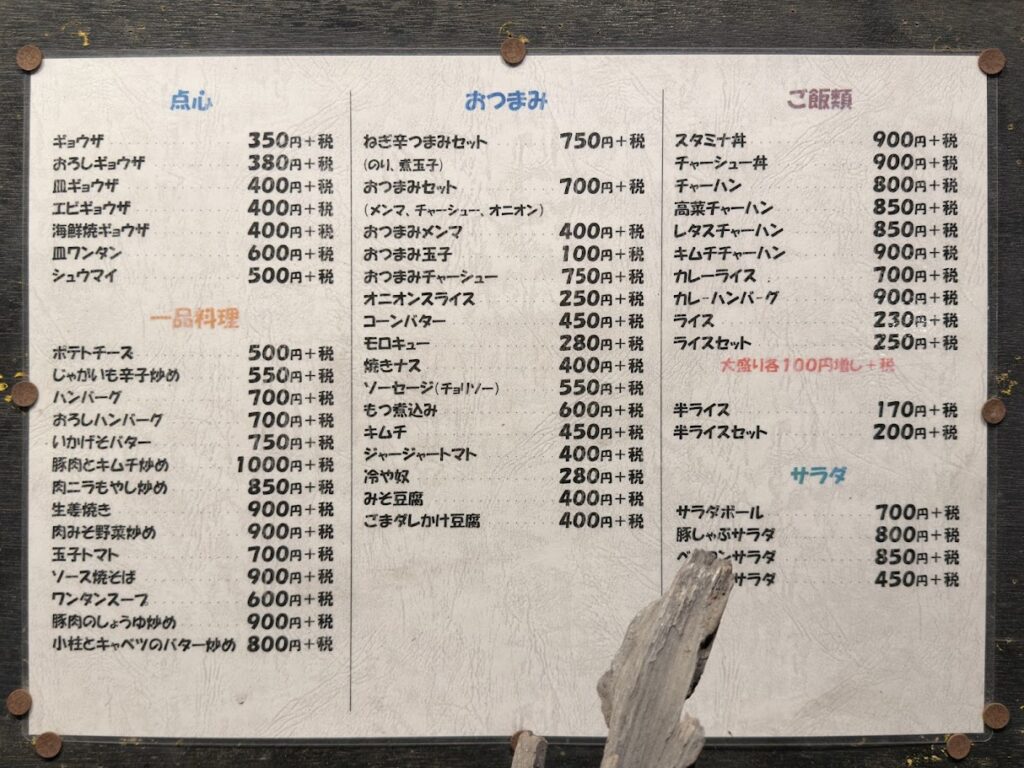 点心
ギョウザ 350円+税
おろしギョウザ 380円+税
皿ギョウザ 400円+税
エビギョウザ 400円+税
海鮮焼ギョウザ 400円+税
皿ワンタン 600円+税
シュウマイ 500円+税
一品料理
ポテトチーズ 500円+税
じゃがいも辛子炒め 550円+税
ハンバーグ 700円+税
おろしハンバーグ 700円+税
いかげそバター 750円+税
豚肉とキムチ炒め 1000円+税
肉ニラもやし炒め 850円+税
生姜焼き 900円+税
肉みそ野菜炒め 900円+税
玉子トマト 700円+税
ソース焼そば 900円+税
ワンタンスープ 600円+税
豚肉のしょうゆ炒め 900円+税
小柱とキャベツのバター炒め 800円+税
おつまみ
ねぎ辛つまみセット 750円+税
(のり、煮玉子)
おつまみセット 700円+税
(メンマ、チャーシュー、オニオン)
おつまみメンマ 400円+税
おつまみ玉子 100円+税
おつまみチャーシュー 750円+税
オニオンスライス 250円+税
コーンバター 450円+税
モロキュー 280円+税
焼きナス 400円+税
ソーセージ(チョリソー) 550円+税
もつ煮込み 600円+税
キムチ 450円+税
ジャージャートマト 400円+税
冷や奴 280円+税
みそ豆腐 400円+税
ごまダレかけ豆腐 400円+税
ご飯類
スタミナ丼 900円+税
チャーシュー丼 900円+税
チャーハン 800円+税
高菜チャーハン 850円+税
レタスチャーハン 850円+税
キムチチャーハン 900円+税
カレーライス 700円+税
カレーハンバーグ 900円+税
ライス 230円+税
ライスセット 250円+税
大盛り各100円増し+税
半ライス 170円+税
半ライスセット 200円+税
サラダ
サラダボール 700円+税
豚しゃぶサラダ 800円+税
サラダ 850円+税
サラダ 450円+税